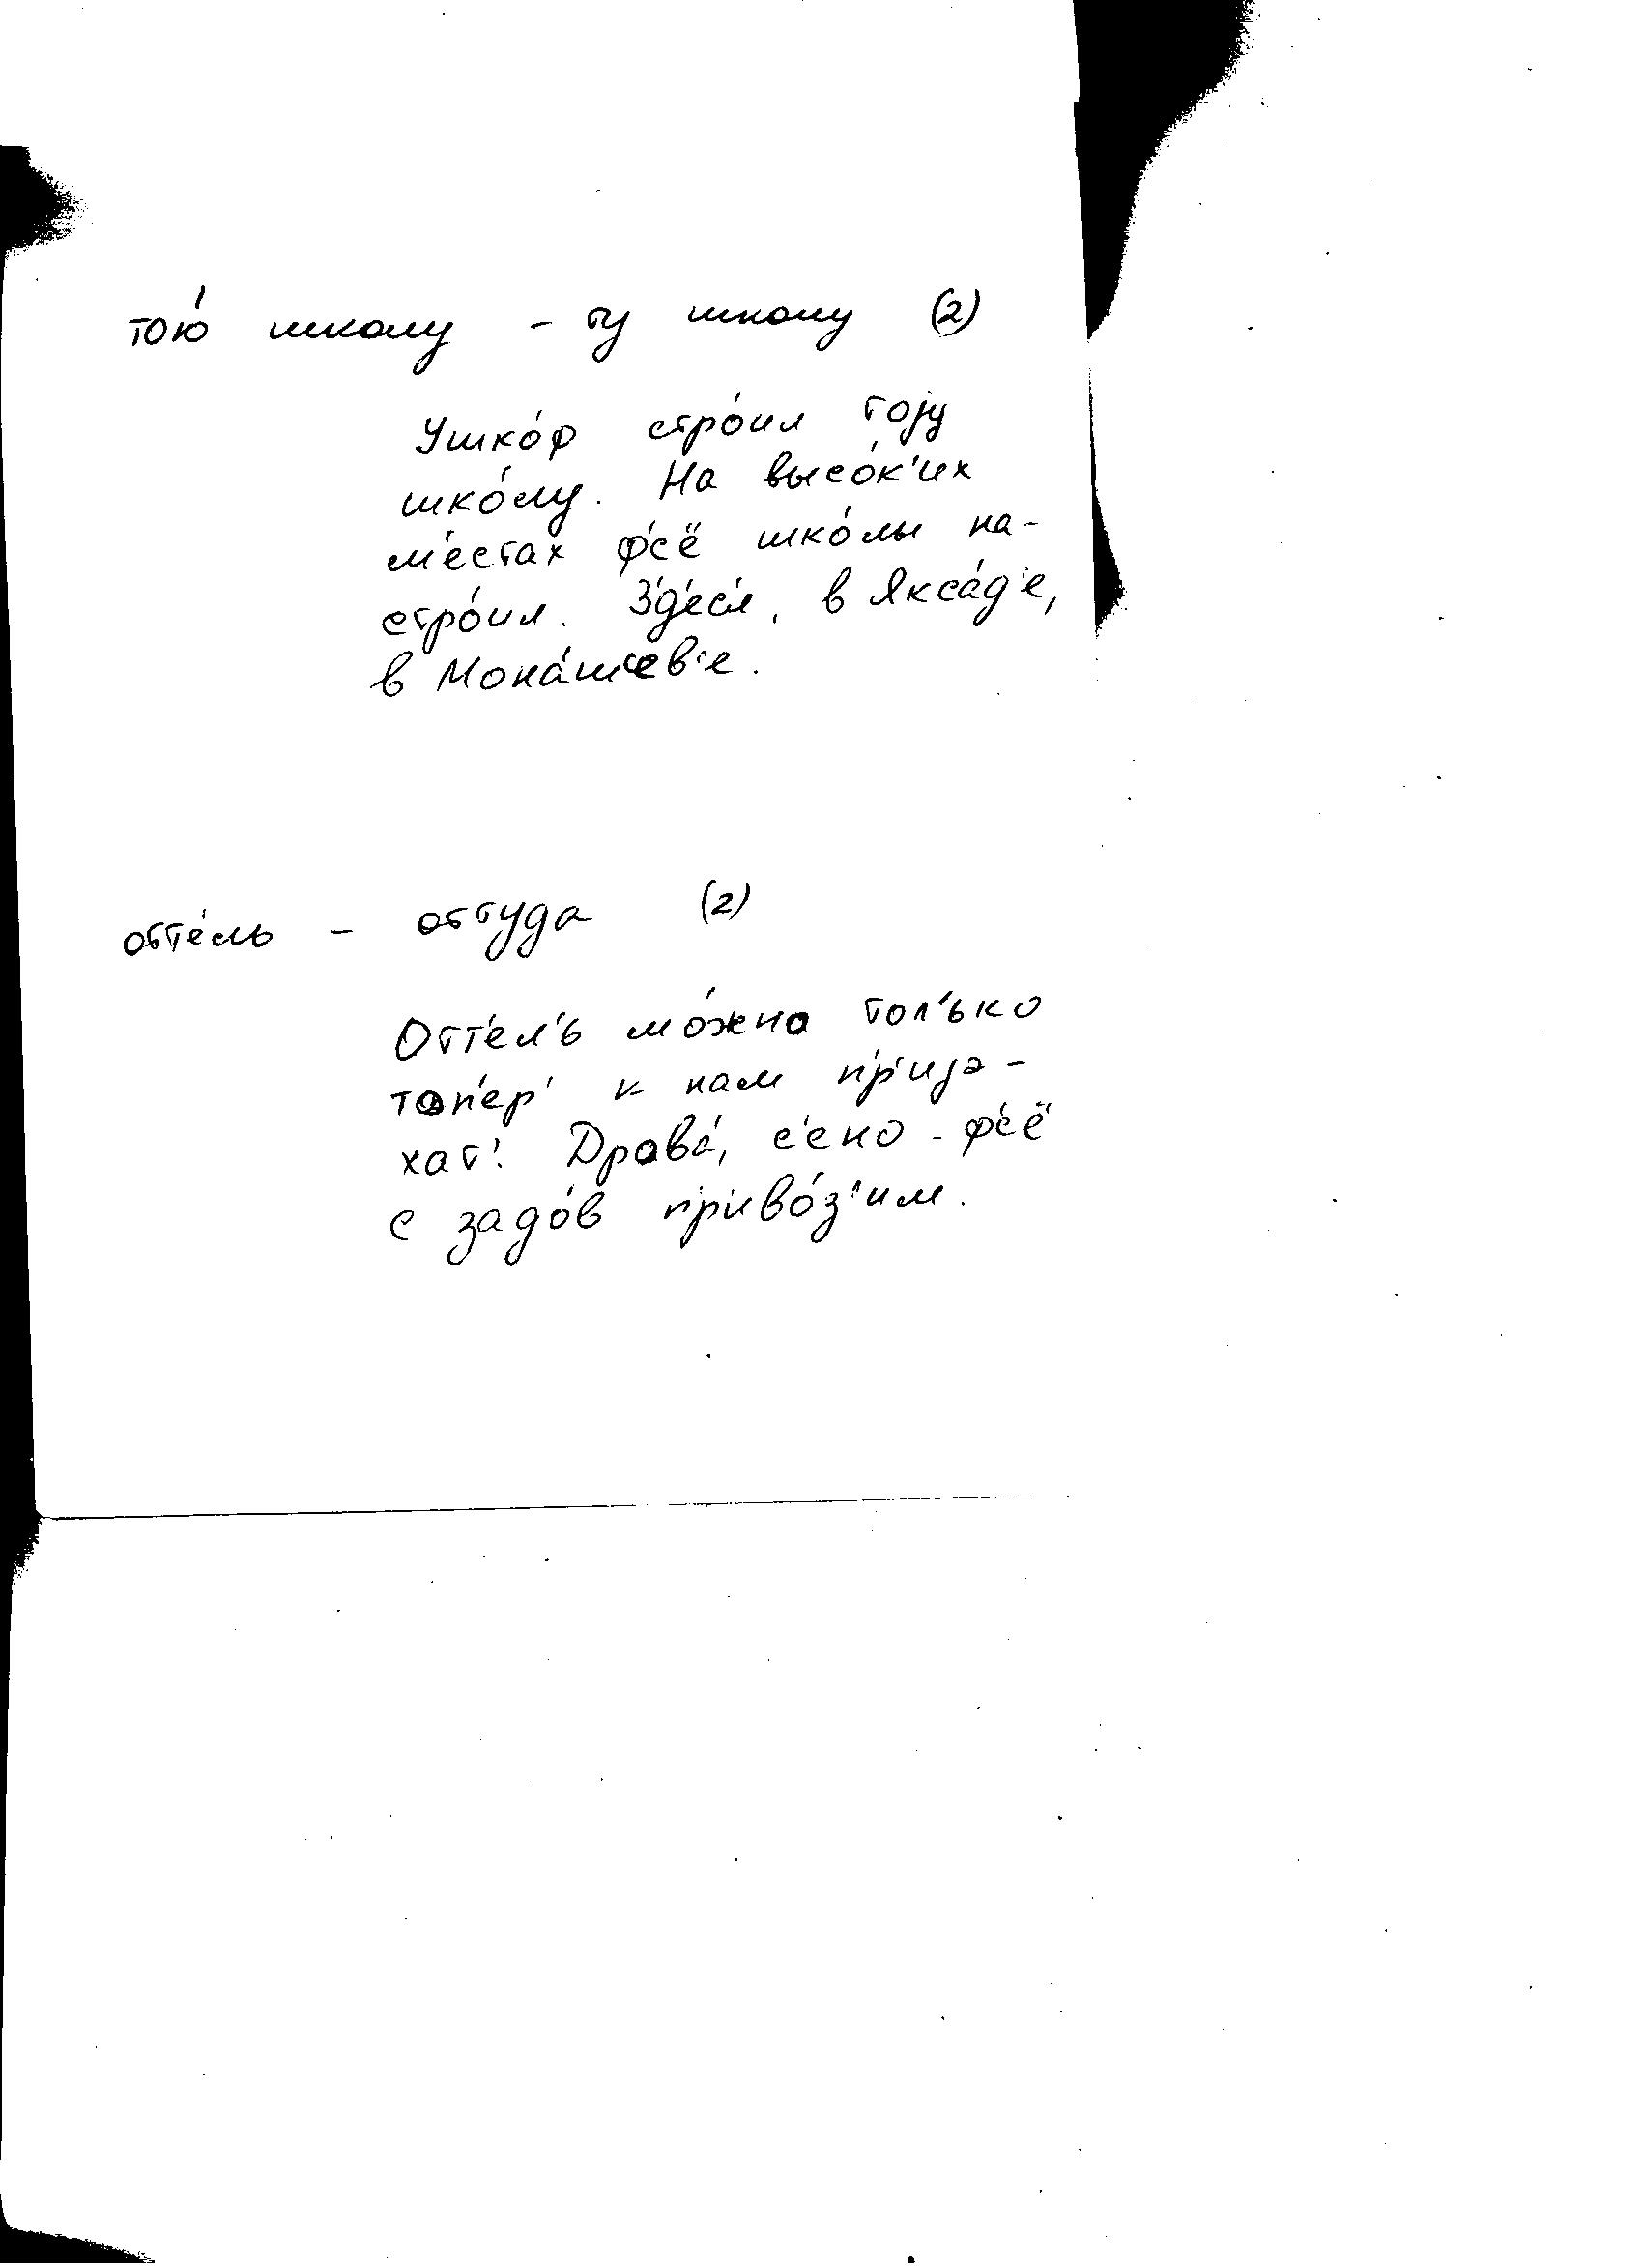 тою́ школу – ту школу (2)
Ушко́ф стро́ил тоjу
шко́лу. На высо́к'их
м'естах ф'с'ё шко́лы на-
стро́ил. З'д'ес'я, в Якса́д'е,
в Мона́шев'е.
оттéль – оттуда (2)
Отт'ел'ь мо́жно тол'ько
топ'ер' к нам пр'иjэ-
хат'. Дрова́, с'ено – ф'с'ё
с задо́в пр'иво́з'им.